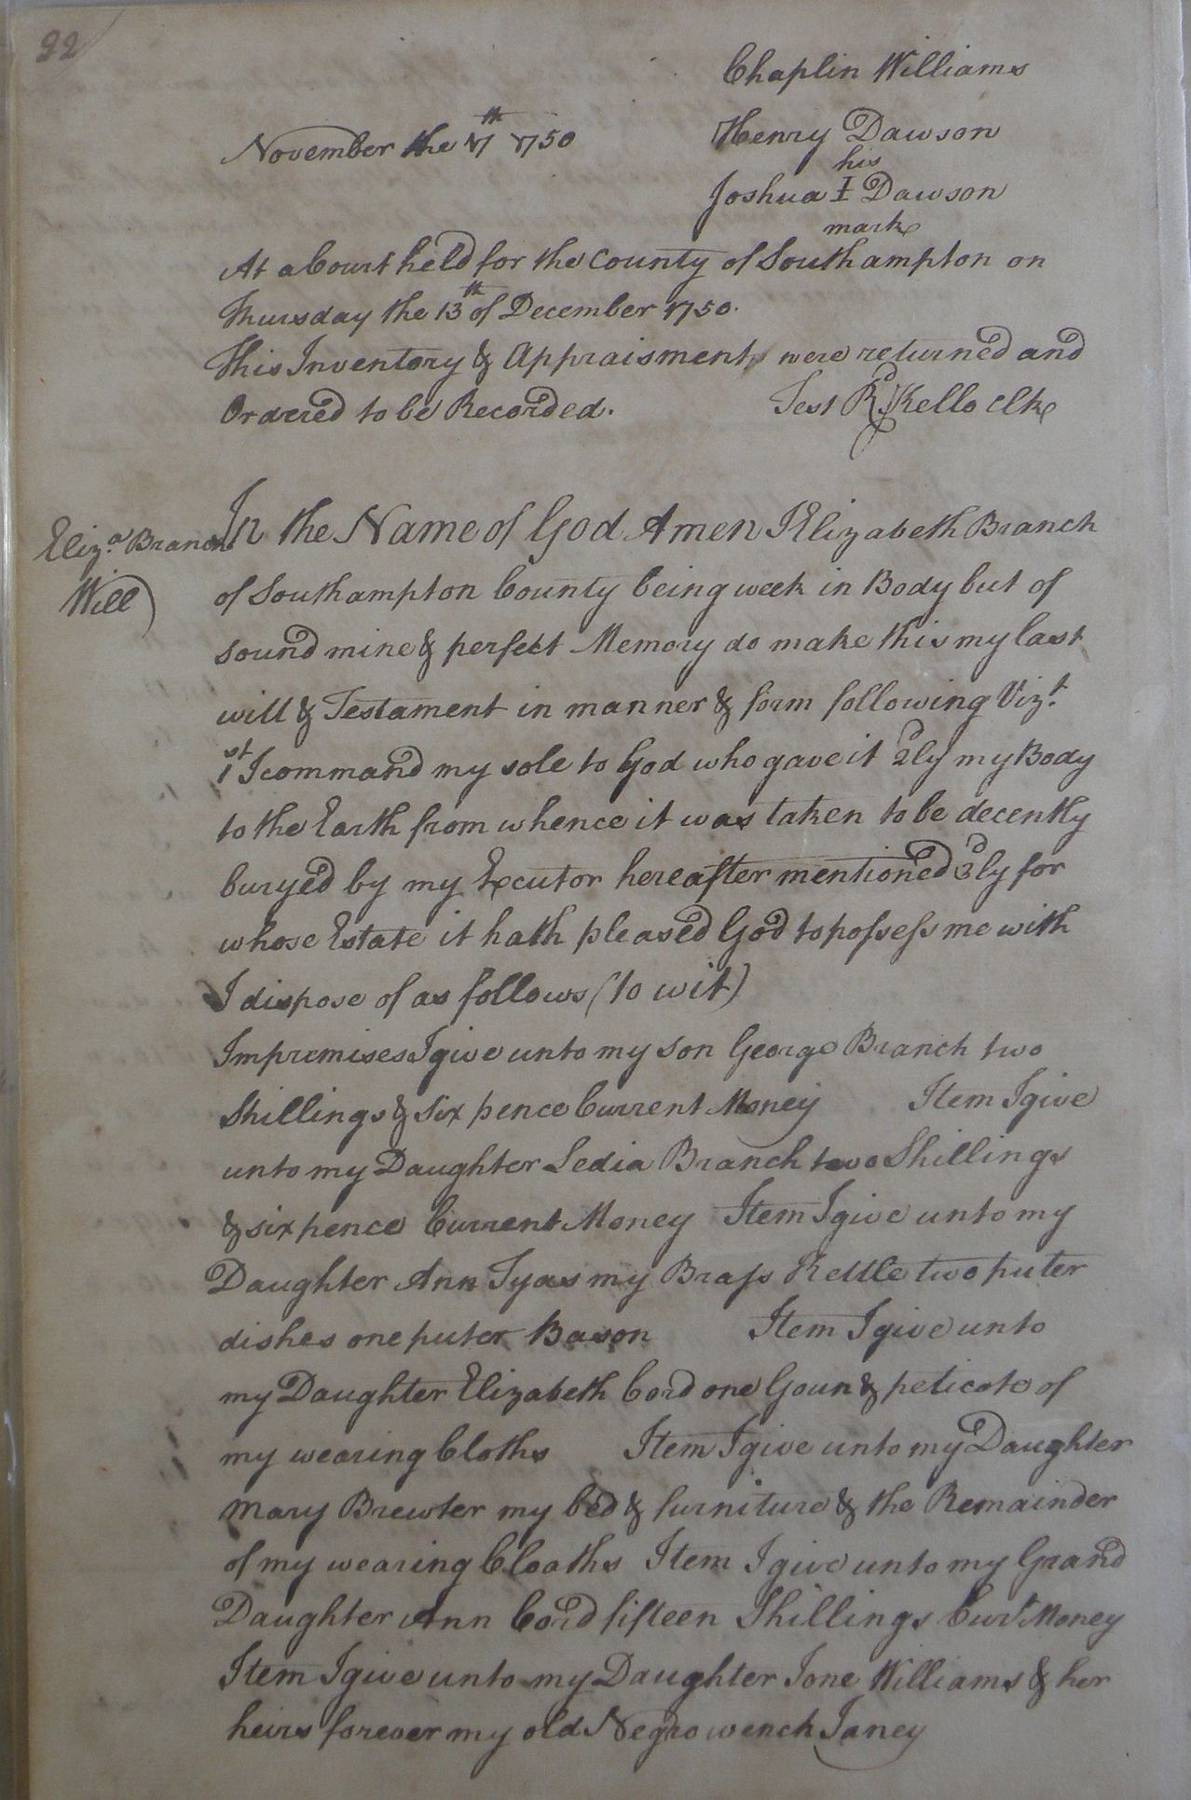 22
Chaplin Williams
November the 7th 1750
Henry Dawson
his
Joshua I Dawson
mark
At a Court held for the County of Southampton on
Thursday the 13th of December 1750.
This Inventory & Appraisment were returned and
Ordered to be Recorded. Test Rd. Kello Clk
Eliza. Branch
Will
In the Name of God Amen I Elizabeth Branch
of Southampton County being week in Body but of
sound mine & perfect Memory do make this my last
will & Testament in manner & form following Vizt.
1st I command my sole to God who gave it 2dly my Body
to the Earth from whence it was taken to be decently
buryed by my Excutor hereafter mentioned 3dly for
whose Estate it hath pleased God to possess me with
I dispose of as follows (to wit)
Impremises I give unto my son George Branch two
Shillings & six pence Current Money Item I give
unto my Daughter Ledia Branch two Shillings
& six pence Current Money Item I give unto my
Daughter Ann Tyas my Brass Kettle two puter
dishes one puter Bason Item I give unto
my Daughter Elizabeth Cord one Goun & peticote of
my wearing Cloths Item I give unto my Daughter
Mary Brewter my bed & furniture & the Remainder
of my wearing Cloaths Item I give unto my Grand
Daughter Ann Cord fifteen Shillings Curt. Money
Item I give unto my Daughter Jone Williams & her
heirs forever my old Negro wench Janey